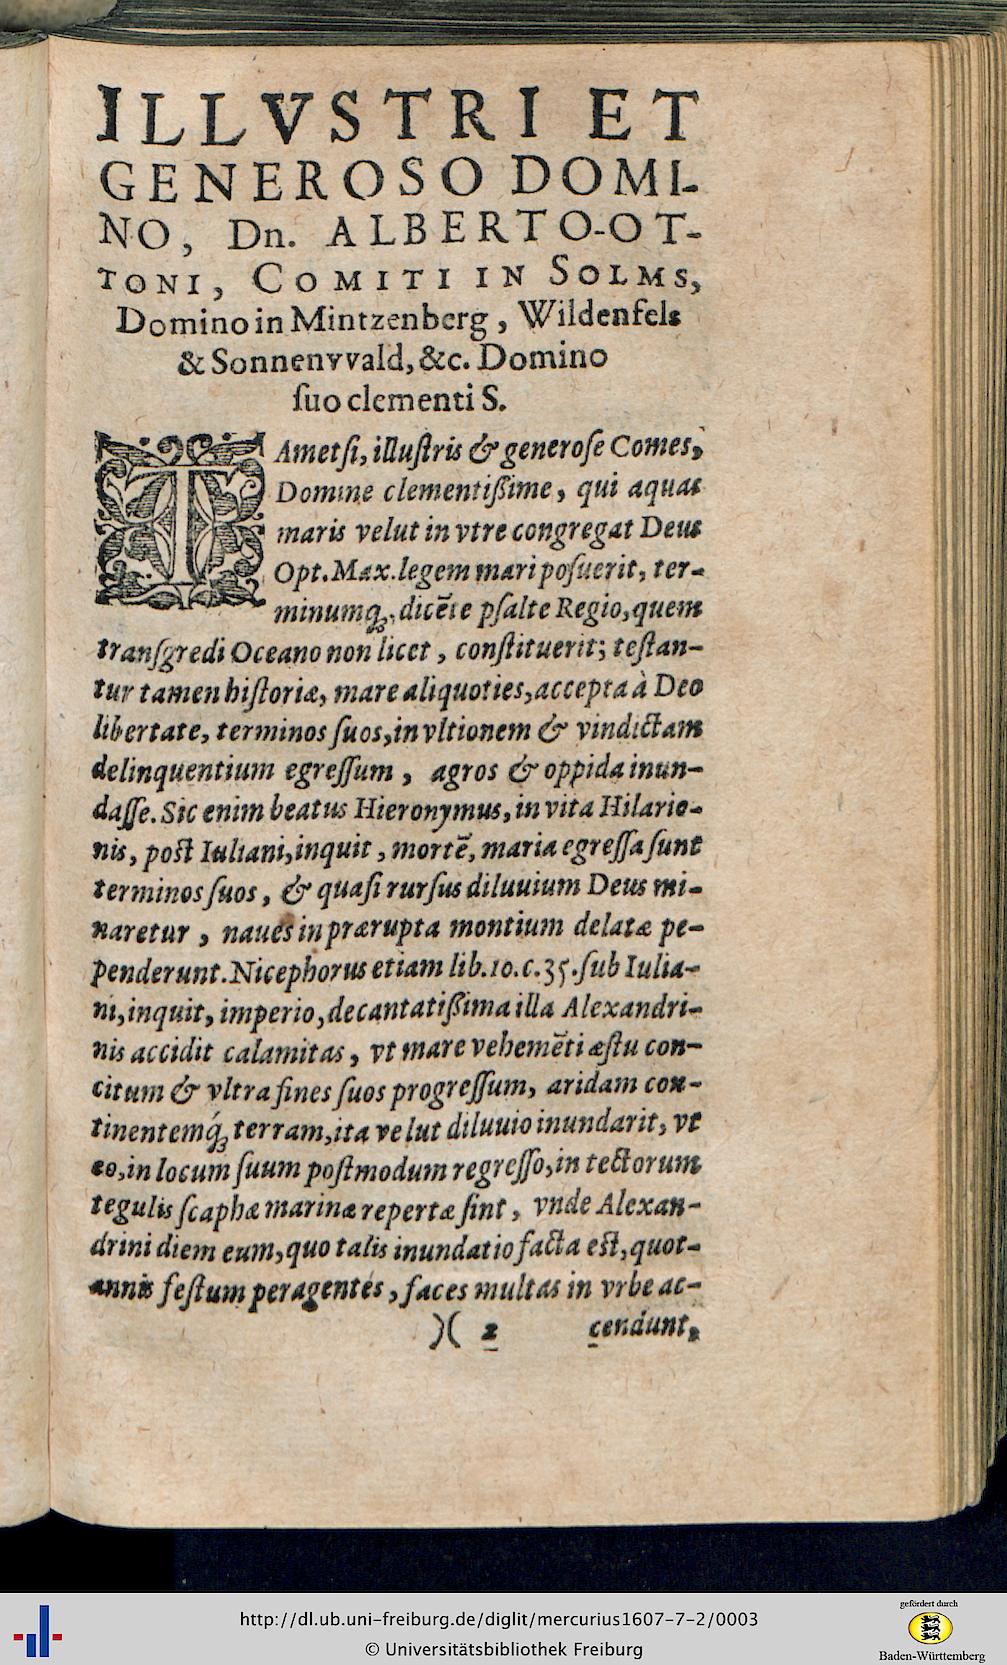 ILLVSTRI ET
GENEROSO DOMI-
NO, Dn. ALBERTO-OT-
TONI, COMITI IN SOLMS,
Domino in Mintzenberg, Wildenfels
& Sonnenvvald, &c. Domino
ſuo clementi S.
TAmetſi, illuſtris & generoſe Comes,
Domine clementißime, qui aquas
maris velut in vtre congregat Deus
Opt. Max. legem mari poſuerit, ter-
minumq́;, dicēte pſalte Regio, quem
tranſgredi Oceano non licet, conſtituerit; teſtan-
tur tamen hiſtoriæ, mare aliquoties, accepta à Deo
libertate, terminos ſuos, in vltionem & vindictam
delinquentium egreſſum, agros & oppida inun-
daſſe. Sic enim beatus Hieronymus, in vita Hilario-
nis, poſt Iuliani, inquit, mortē, maria egreſſa ſunt
terminos ſuos, & quaſi rurſus diluuium Deus mi-
naretur, naues in prærupta montium delatæ pe-
penderunt. Nicephorus etiam lib. 10. c. 35. ſub Iulia-
ni, inquit, imperio, decantatißima illa Alexandri-
nis accidit calamitas, vt mare vehemēti æſtu con-
citum & vltra fines ſuos progreſſum, aridam con-
tinentemq́; terram, ita velut diluuio inundarit, vt
eo, in locum ſuum poſtmodum regreſſo, in tectorum
tegulis ſcaphæ marinæ repertæ ſint, vnde Alexan-
drini diem eum, quo talis inundatio facta eſt, quot-
annis feſtum peragentes, faces multas in vrbe ac-
)( 2 cendunt,
http://dl.ub.uni-freiburg.de/diglit/mercurius1607-7-2/0003
© Universitätsbibliothek Freiburg
gefördert durch
Baden-Württemberg